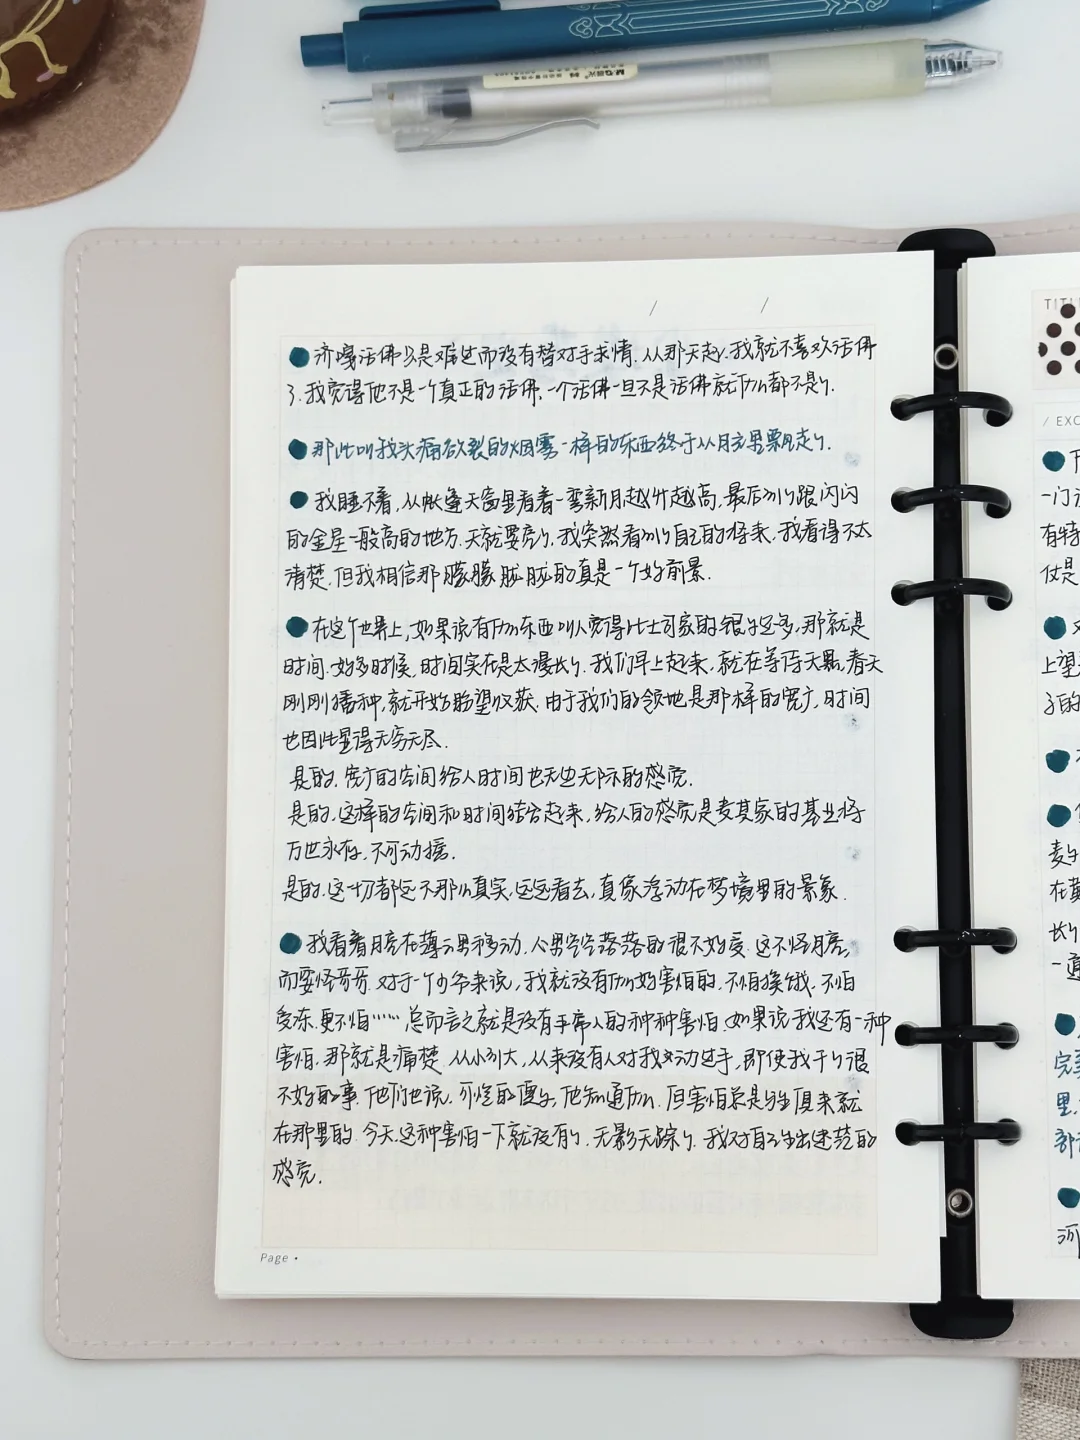 M&G 晨光
济嘎活佛只是难过而没有替对手求情.从那天起,我就不喜欢活佛
了.我觉得他不是一个真正的活佛.一个活佛一旦不是活佛就什么都不是了.
那些叫我头痛欲裂的烟雾一样的东西终于从月亮里飘走了.
我睡不着,从帐篷天窗里看着一弯新月越升越高,最后到了跟闪闪
的金星一般高的地方.天就要亮了.我突然看到了自己的将来.我看得不太
清楚.但我相信那朦朦胧胧的真是一个好前景.
在这个世界上,如果说有什么东西叫人觉得比土司家的银子还多,那就是
时间.好多时候,时间实在是太漫长了.我们早上起来,就在等待天黑,春天
刚刚播种,就开始盼望收获.由于我们的领地是那样的宽广,时间
也因此显得无穷无尽.
是的.宽广的空间给人时间也无边无际的感觉.
是的.这样的空间和时间结合起来,给人的感觉是麦其家的基业将
万世永存,不可动摇.
是的.这一切都远不那么真实.远远看去,真像浮动在梦境里的景象.
我看着月亮在薄云里移动.心里空空落落的很不好受.这不怪月亮,
而要怪哥哥.对于一个少爷来说,我就没有什么好害怕的.不怕挨饿.不怕
受冻.更不怕……总而言之就是没有平常人的种种害怕.如果说我还有一种
害怕.那就是痛楚.从小到大,从来没有人对我动过手,即使我干了很
不好的事.他们也说.可怜的傻子,他知道什么.但害怕总是与生俱来就
在那里的.今天,这种害怕一下就没有了.无影无踪了.我对自己生出迷茫的
感觉.
Page •
TITLE
/ EXC
一门
有特
仗是
上望
子的
麦子
在
长
一道
完
里.
部
河